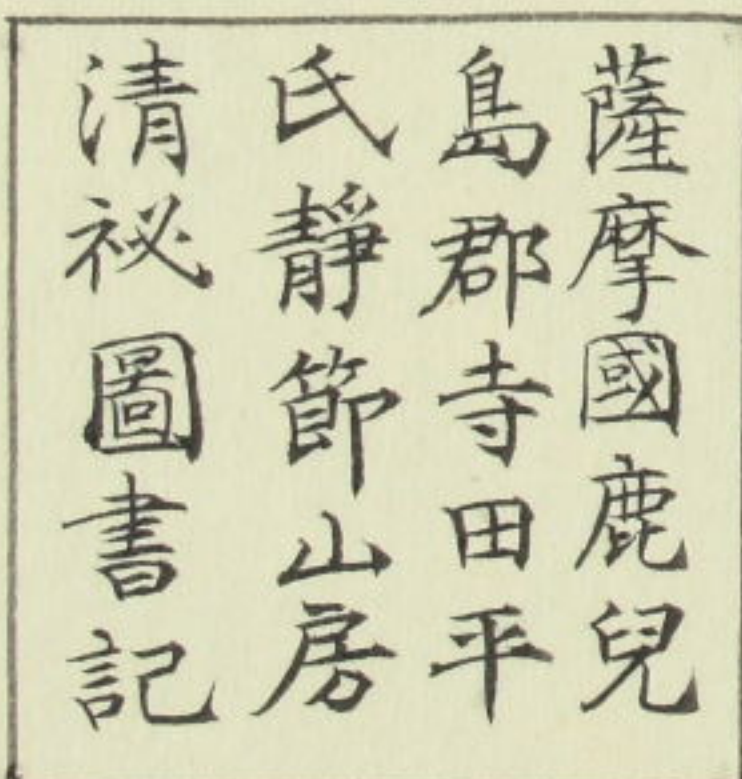 薩摩國鹿兒
島郡寺田平
氏靜節山房
清祕圖書記